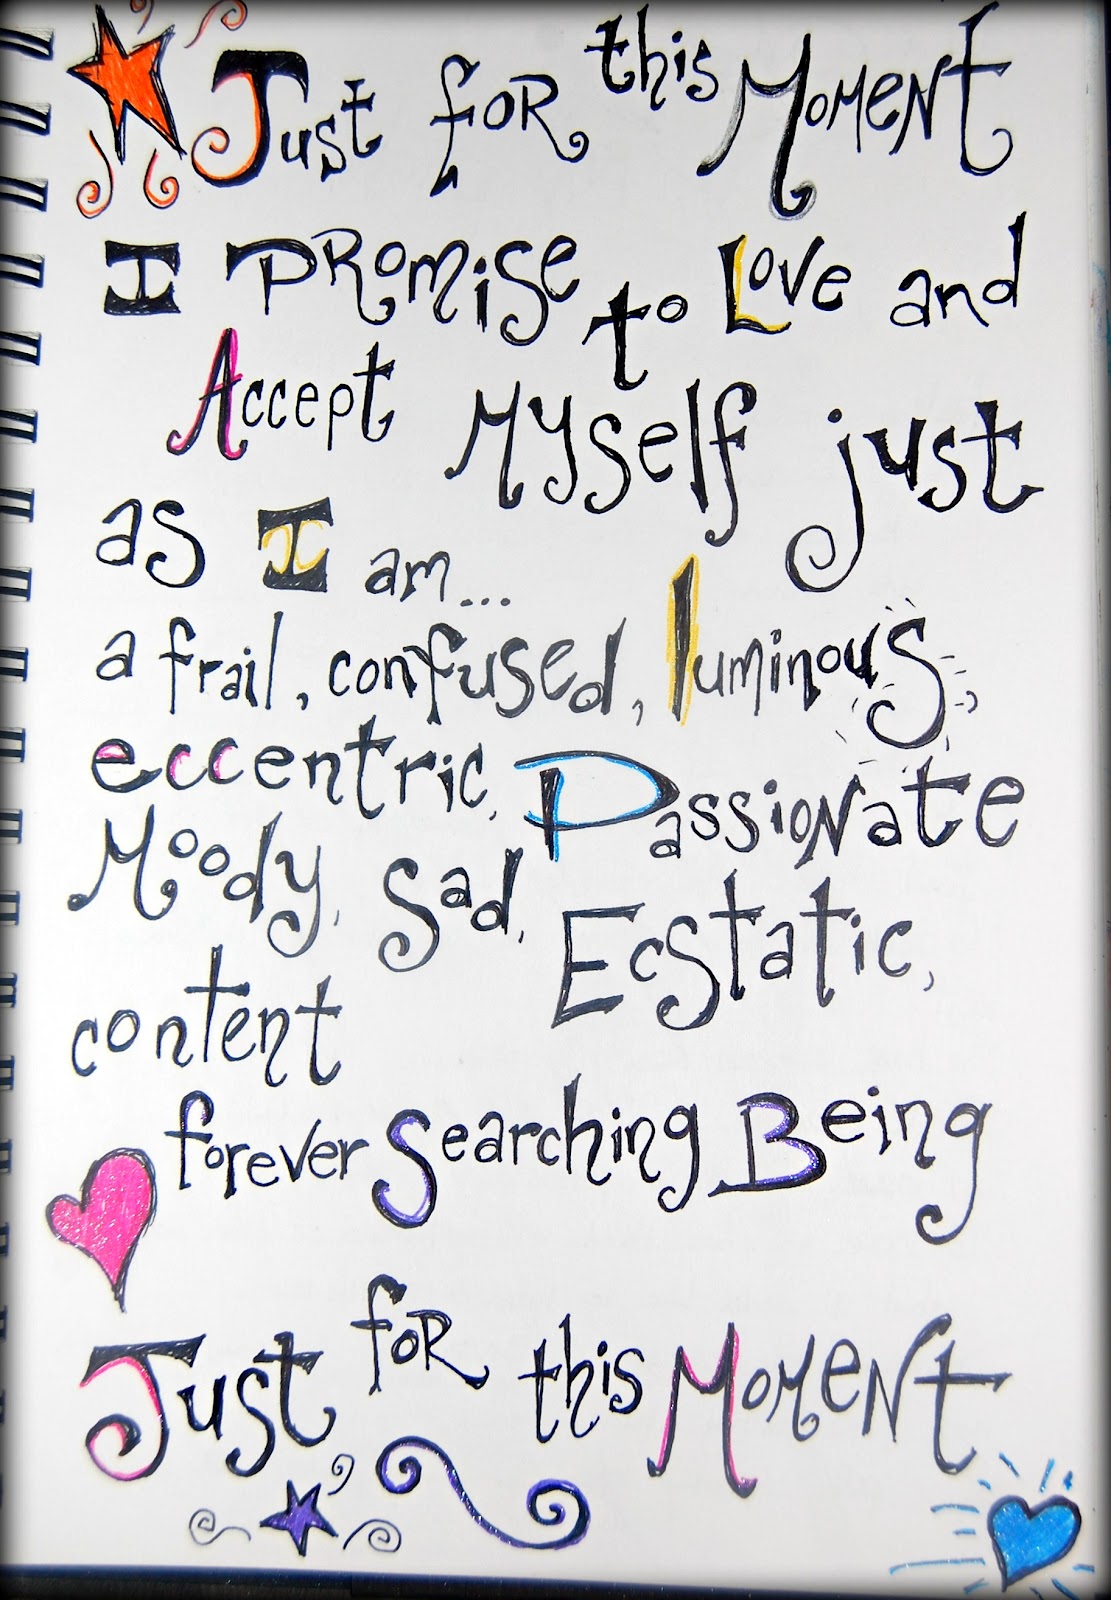 Just for this Moment
I Promise to Love and
Accept Myself just
as I am...
a frail, confused, luminous,
eccentric, Passionate
Moody, Sad, Ecstatic,
content
forever Searching Being
Just for this Moment